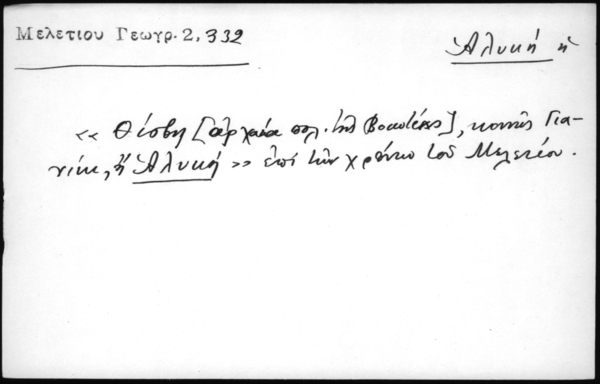 Μελετίου Γεωγρ. 2, 332
Ἁλυκή ἡ
« Θίσβη [ἀρχαία πόλ. τῆς Βοιωτίας], κοινῶς Για-
νίκι, ἢ Ἁλυκή » ἐπὶ τῶν χρόνων τοῦ Μελετίου.